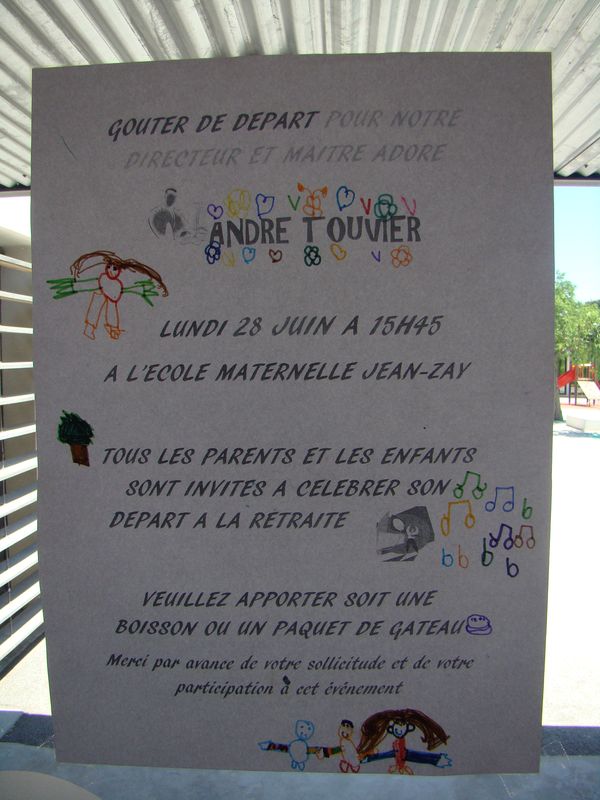 GOUTER DE DEPART POUR NOTRE
DIRECTEUR ET MAITRE ADORE
ANDRE TOUVIER
LUNDI 28 JUIN A 15H45
A L'ECOLE MATERNELLE JEAN-ZAY
TOUS LES PARENTS ET LES ENFANTS
SONT INVITES A CELEBRER SON
DEPART A LA RETRAITE
VEUILLEZ APPORTER SOIT UNE
BOISSON OU UN PAQUET DE GATEAU
Merci par avance de votre sollicitude et de votre
participation à cet événement